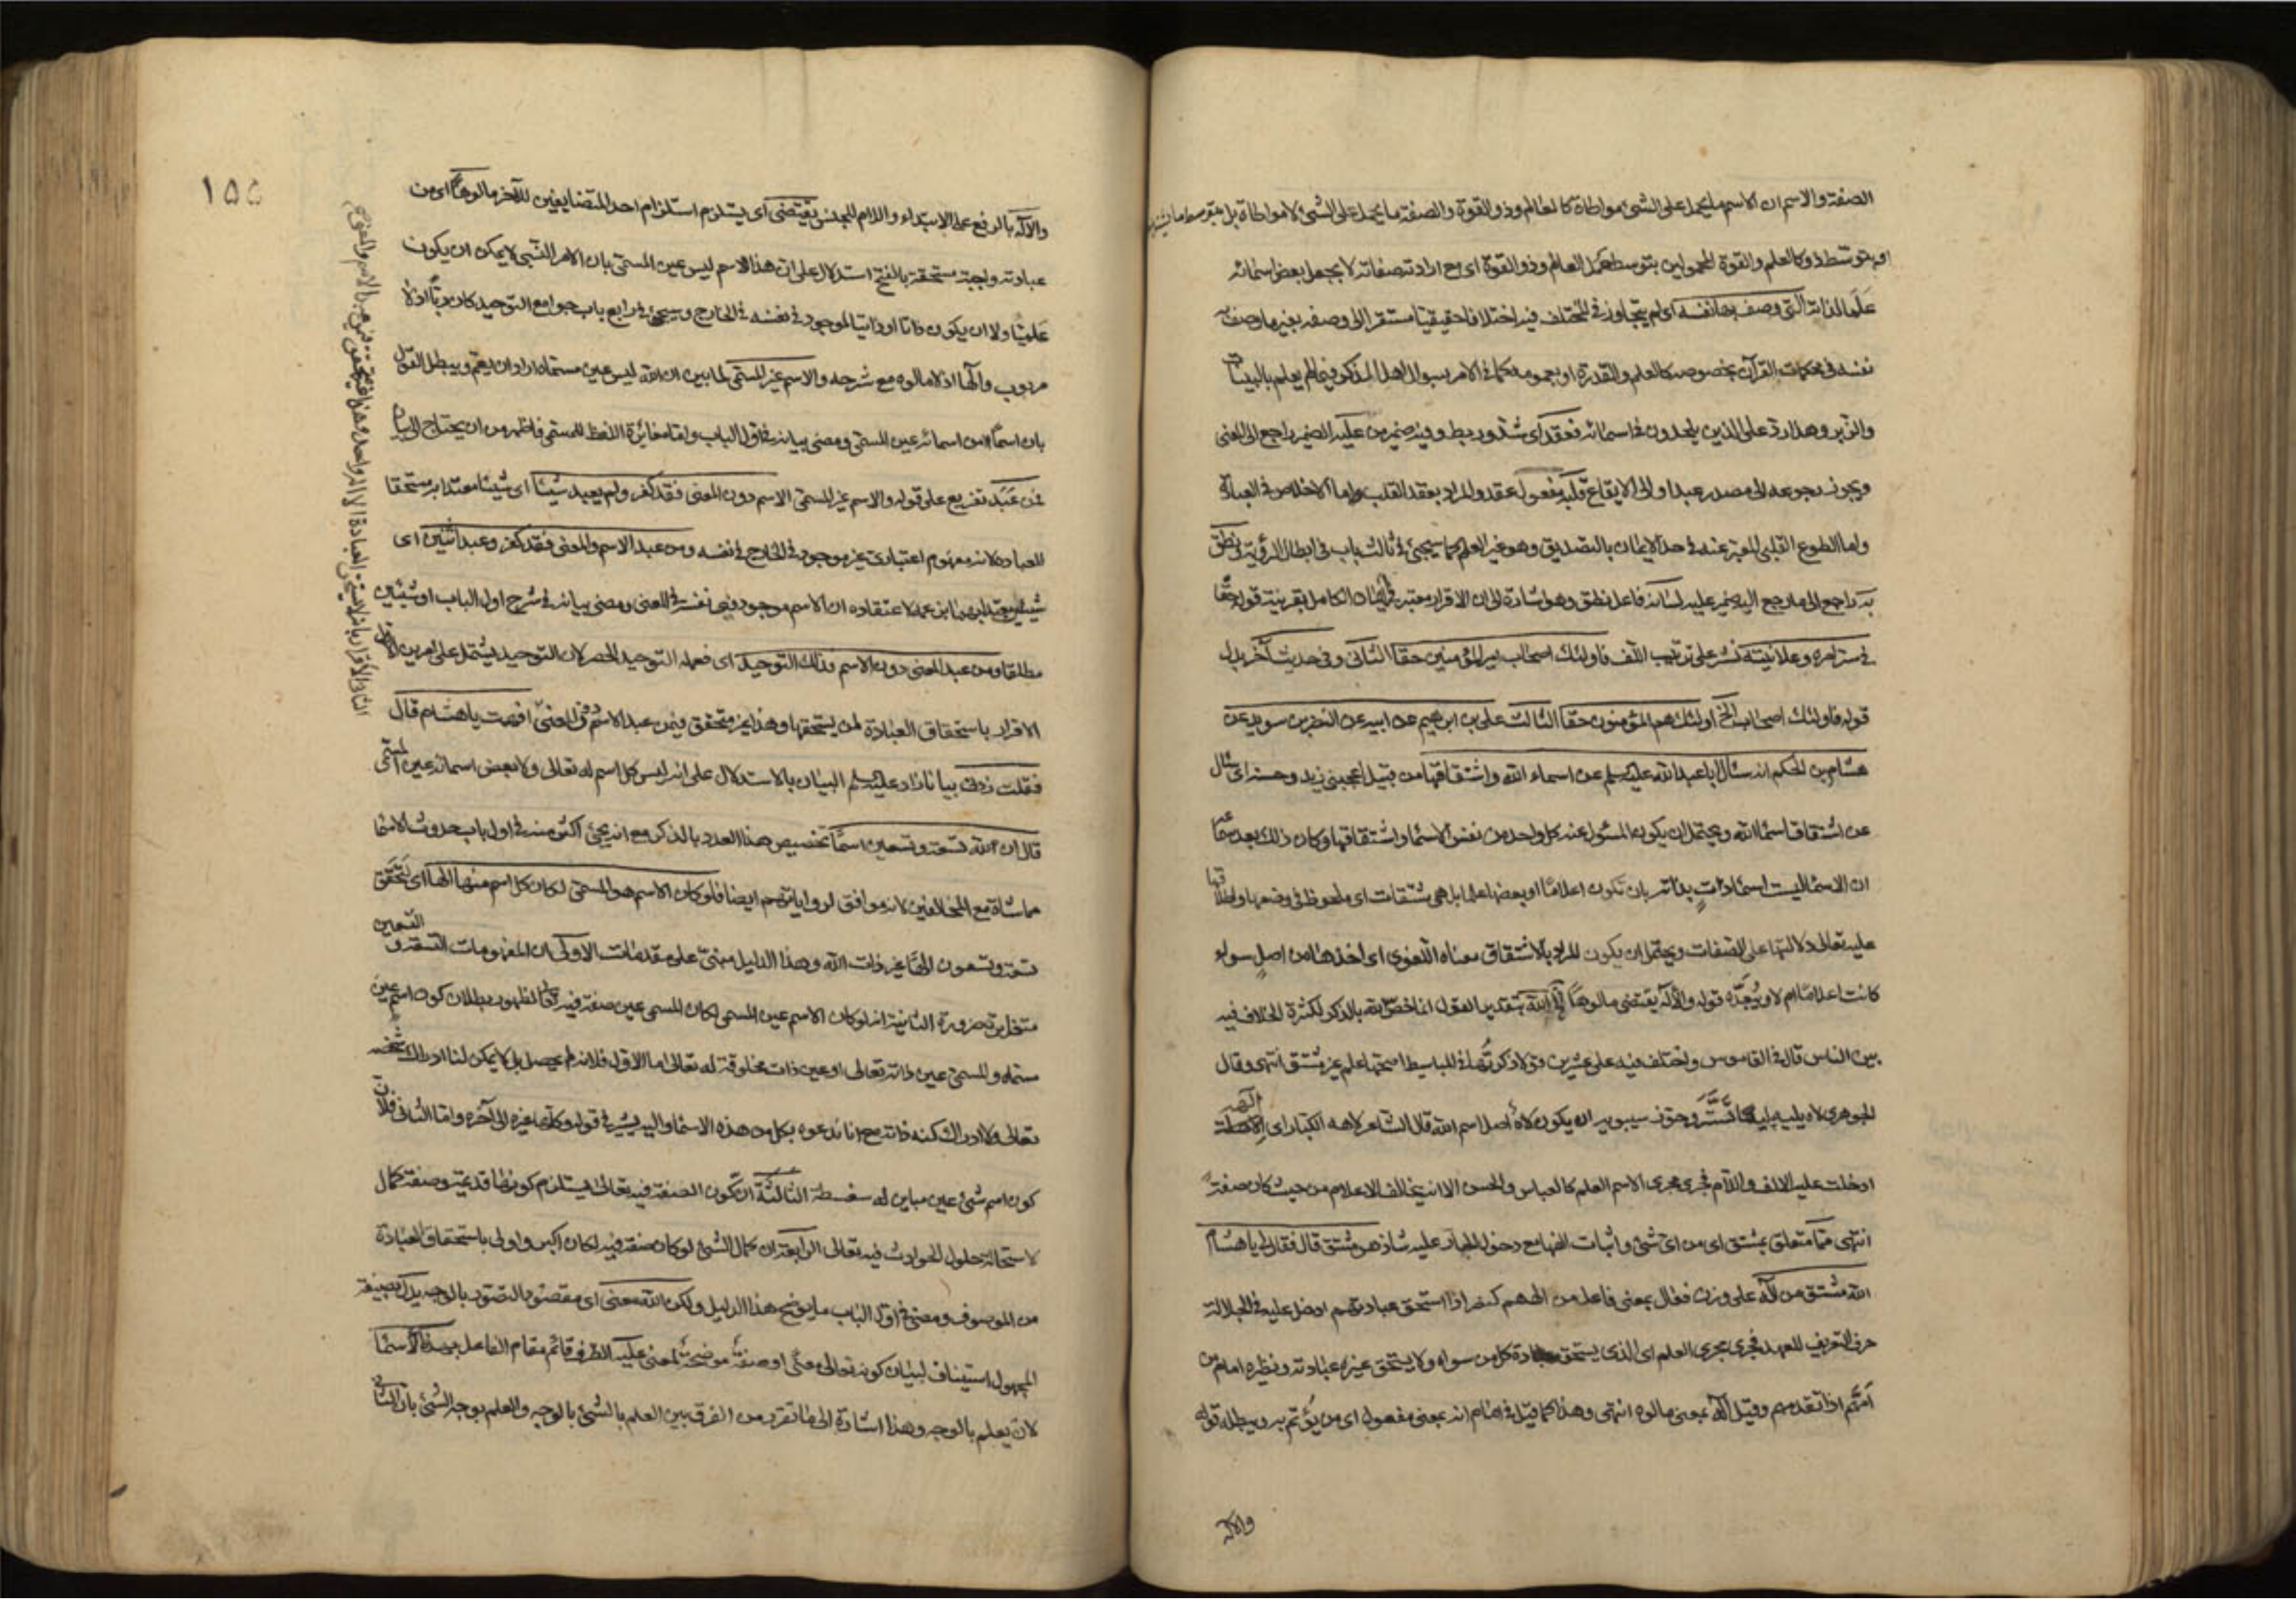 الصفة والاسم ان الاسم ما يحمل على الشئ مواطاة كالعالم وذو القوة والصفة ما يحمل على الشئ لا مواطاة بل بتوسط
او بتوسط ذو كالعلم والقوة المحمولين بتوسط حمل العالم وذو القوة اى مع ارادته صفاته لا بجعل بعض اسمائه
علما لذاته التى وصف بها نفسه اى لم يتجاوز فى المختلف فيه اختلافا حقيقيا مستقرا الى وصفه بغير ما وصف به
نفسه فى محكمات القرآن بخصوصه كالعلم والقدرة او بعمومه كما فى الامر بسؤال اهل الذكر فيما لم يعلم بالبينات
والزبر وهذا رد على الذين يلحدون فى اسمائه فعقد اى شد وربط وفيه ضمير من عليه الضمير راجع الى المعنى
ويجوز رجوعه الى مصدر عبد او الى الايقاع قلبه مفعول عقد والمراد بعقد القلب اما الاخلاص فى العبادة
واما الطوع القلبى المعبر عنه فى حد الايمان بالتصديق وهو غير العلم كما سيجئ فى ثالث باب فى ابطال الرؤية ونطق
به راجع الى ما رجع اليه ضمير عليه لسانه فاعل نطق وهو اشارة الى ان الاقرار معتبر فى الايمان الكامل بقرينة قوله حقا
فى سرائره وعلانيته نشر على ترتيب اللف فاولئك اصحاب امير المؤمنين حقا الثانى وفى حديث آخر بدل
قوله فاولئك اصحاب الخ اولئك هم المؤمنون حقا الثالث على بن ابرهيم عن ابيه عن النضر بن سويد عن
هشام بن الحكم انه سأل ابا عبد الله عليه السلم عن اسماء الله واشتقاقها من قبيل اعجبنى زيد وحسنه اى سأل
عن اشتقاق اسماء الله ويحتمل ان يكون المسئول عنه كل واحد من نفس الاسماء واشتقاقها وكان ذلك بعد
ان الاسماء ليست اسماء ذات بذاته بان تكون اعلاما او بعضها علما بل هى مشتقات اى ملحوظ فى وضعها واطلاقها
عليه تعالى دلالتها على الصفات ويحتمل ان يكون المراد بالاشتقاق معناه اللغوى اى اخذها من اصل سواء
كانت اعلاما ام لا ويؤيده قوله والاله يقتضى مالوها الله بتقدير القول انما خص الله بالذكر لكثرة الخلاف فيه
بين الناس قال فى القاموس واختلف فيه على عشرين قولا ذكرتها فى المباسيط اصحها علم غير مشتق انتهى وقال
الجوهرى لاه يليه ليها تستر وجوز سيبويه ان يكون لاه اصل اسم الله قال الشاعر لاهه الكبار اى الاهه
ادخلت عليه الالف واللام فجرى مجرى الاسم العلم كالعباس والحسن الا انه يخالف الاعلام من حيث كان صفة
انتهى مما متعلق بمشتق اى من اى شئ واثبات الفها مع دخول الجار عليه شاذ هو مشتق قال فقال لى يا هشام
الله مشتق من اله على وزن فعال بمعنى فاعل من الههم كنصر اذا استحق عبادتهم ادخل عليه فى الجلالة
حرف التعريف للعهد فجرى مجرى العلم اى الذى يستحق عبادة كل من سواه ولا يستحق غيره عبادته ونظيره امام من
امهم اذا تقدمهم وقيل اله بمعنى مالوه انتهى وهذا كما قيل فى امام انه بمعنى مفعول اى من يؤتم به ويبطله قوله
والاله
١٥٥
والاله بالرفع على الابتداء واللام للجنس يقتضى اى يستلزم استلزام احد المتضايفين للآخر مالوها اى من
عبادته واجبة مستحقة بالفتح استدلال على ان هذا الاسم ليس عين المسمى بان الامر النسبى لا يمكن ان يكون
علميا ولا ان يكون ذاتا او ذاتيا لموجود فى نفسه فى الخارج وسيجئ فى رابع باب جوامع التوحيد كان ربا اذ لا
مربوب والها اذ لا مالوه مع شرحه والاسم غير المسمى لما بين ان الله ليس عين مسماه اراد ان يعمم ويبطل القول
بان اسما من اسمائه عين المسمى ومضى بيانه فى اول الباب واما مغايرة اللفظ للمسمى فاظهر من ان يحتاج الى بيان
فمن عبد تفريع على قوله والاسم غير المسمى الاسم دون المعنى فقد كفر ولم يعبد شيئا اى شيئا معتدا به مستحقا
للعبادة لانه مفهوم اعتبارى غير موجود فى الخارج فى نفسه ومن عبد الاسم والمعنى فقد كفر وعبد اثنين اى
شيئين معتدا بهما بزعمه لاعتقاده ان الاسم موجود فى نفسه كالمعنى ومضى بيانه فى شرح اول الباب او شيئين
مطلقا ومن عبد المعنى دون الاسم فذلك التوحيد اى فعمله التوحيد الحصر لان التوحيد يشتمل على امرين الاول
الاقرار باستحقاق العبادة لمن يستحقها وهذا غير متحقق فيمن عبد الاسم دون المعنى افهمت يا هشام قال
فقلت زدنى بيانا زاد عليه السلم البيان بالاستدلال على انه ليس كل اسم له تعالى ولا بعض اسمائه عين المسمى
قال ان لله تسعة وتسعين اسما تخصيص هذا العدد بالذكر مع انه يجئ اكثر منه فى اول باب حدوث الاسماء
مماشاة مع المخالفين لانه موافق لرواياتهم ايضا فلو كان الاسم هو المسمى لكان كل اسم منها الها اى لتحقق
تسعة وتسعون الها غير ذات الله وهذا الدليل مبنى على مقدمات الاولى ان المفهومات التسعة والتسعين
متغايرة ضرورة الثانية انه لو كان الاسم عين المسمى لكان المسمى عين صفة فيه تعالى لظهور بطلان كون اسم عين
مسماه والمسمى عين ذاته تعالى او عين ذات مخلوقة له تعالى اما الاول فلانه لم يحصل بل لا يمكن لنا ادراك شخصه
تعالى ولا ادراك كنه ذاته مع انا ندعوه بكل من هذه الاسماء واليه يشير فى قوله وكلها غيره الى آخره واما الثانى فلان
كون اسم شئ عين مباين له سفسطة الثالثة ان كون الصفة فيه تعالى يستلزم كونها قديمة وصفة كمال
لاستحالة حلول الحوادث فيه تعالى الرابعة ان كمال الشئ لو كان صفة فيه لكان اكبر واولى باستحقاق العبادة
من الموصوف ومضى فى اول الباب ما يوضح هذا الدليل ولكن الله معنى اى مقصود بالتصور بالوجه يدل بصيغة
المجهول استيناف لبيان كونه تعالى معنى او صفة موضحة لمعنى عليه الظرف قائم مقام الفاعل بهذه الاسماء
لان يعلم بالوجه وهذا اشارة الى ما تقرر من الفرق بين العلم بالشئ بالوجه والعلم بوجه الشئ بان الثانى